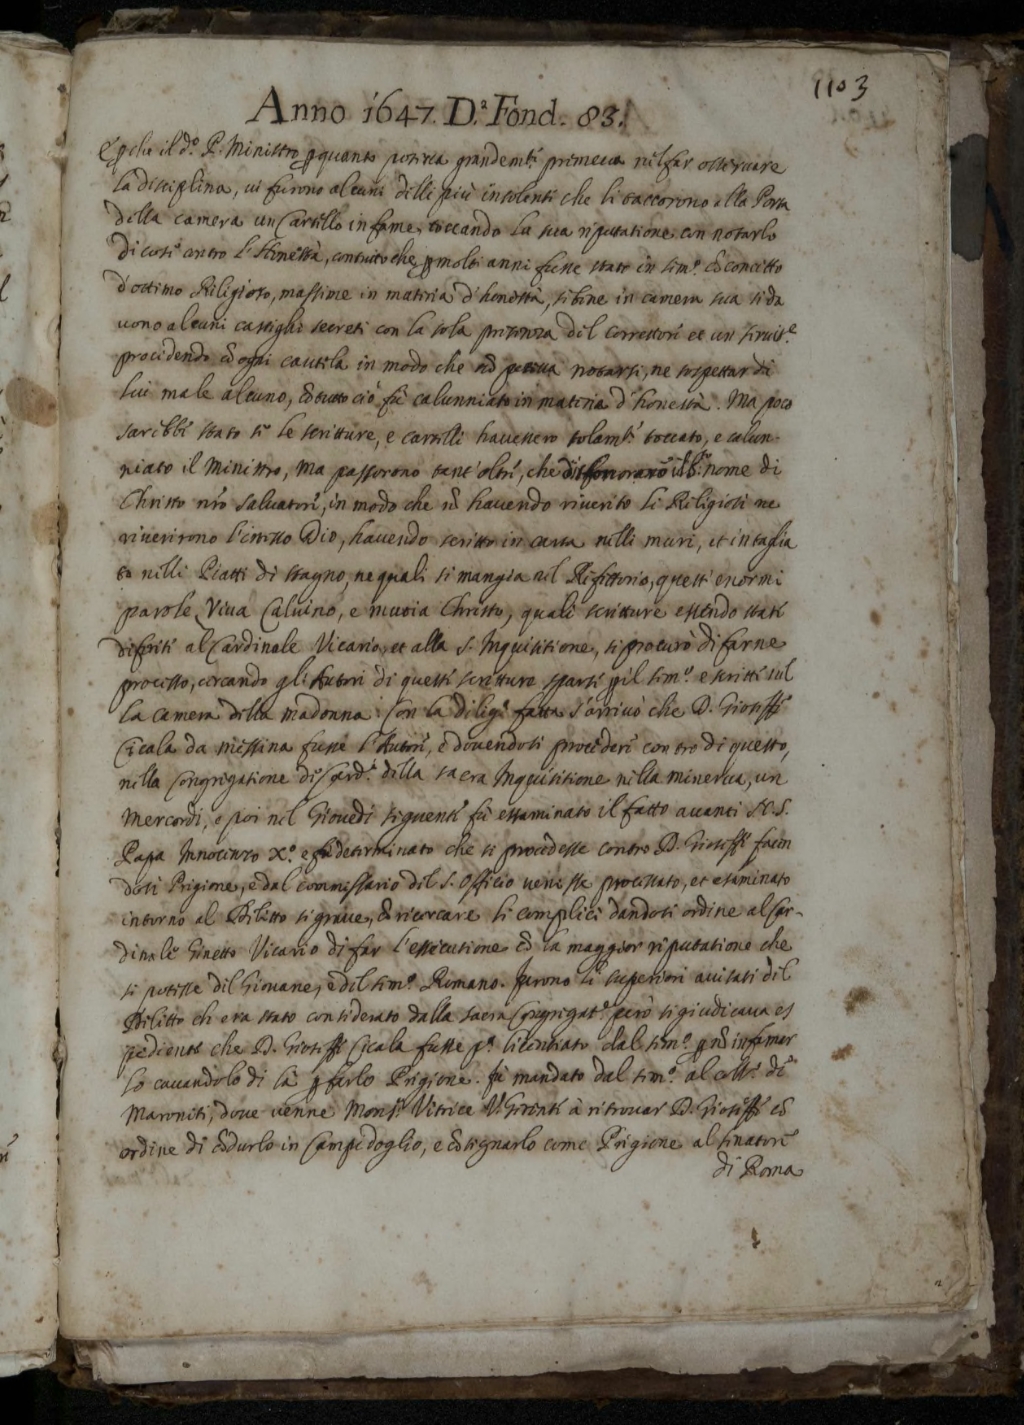 1103
Anno 1647. D.ª Fond. 83.
E p che il d.º P. Ministro p quanto poteva grandem.te premeva nel far osservare
la disciplina, vi furono alcuni delli più insolenti che li attaccorono alla Porta
della camera un Cartello infame, toccando la sua riputatione con notarlo
di cose contro l'honestà, contuttoche p molti anni fusse stato in Sem.º cõ concetto
d'ottimo Religioso, massime in materia d'honestà, sibene in camera sua si da
uono alcuni castighi secreti con la sola presenza del correttore et un seruit.e
procedendo cõ ogni cautela in modo che nõ poteua notarsi, ne sospettar di
lui male alcuno, cõ tutto ciò fù calunniato in materia d'honestà. Ma poco
sarebbe stato se le scritture, e cartelli hauessero solam.te toccato, e calun-
niato il Ministro, ma passorono tant'oltre, che dishonorarõ il S.º nome di
Christo nr̃o Saluatore, in modo che nõ hauendo riuerito li Religiosi ne
riuerirono l'istesso Dio, hauendo scritto in carta nelli muri, et intaglia
to nelli Piatti di stagno, ne quali si mangia nel Refettorio, queste enormi
parole, Viua Caluino, e muoia Christo, quali scritture essendo state
riferite al Cardinale Vicario, et alla S. Inquisitione, si procurò di farne
processo, cercando gli Autori di queste scritture sparse p il Sem.º e scritte sul
la camera della madonna. Con la dilig.ª fatta s'arriuò che D. Gioseffe
Cicala da messina fusse l'Autore, e douendosi procedere contro di questo,
nella Congregatione di Card.i della sacra Inquisitione nella minerua, un
Mercordi, e poi nel Giouedi seguente fù essaminato il fatto auanti N. S.
Papa Innocenzo X.º e fu determinato che si procedesse contro D. Gioseffe facen
dosi Prigione, e dal commissario del S. Officio uenisse processato, et esaminato
intorno al Delitto si graue, cõ ricercare li complici dandosi ordine al Car-
dinale Ginetto Vicario di far l'essecutione cõ la maggior riputatione che
si potesse del Giouane, e del Sem.º Romano. Furono li superiori auisati del
Delitto ch era stato considerato dalla sacra Congregat.e però si giudicaua es
pediente che D. Gioseffe Cicala fusse p.ª licentiato dal Sem.º p nõ infamar
lo cauandolo di là p farlo Prigione. Fù mandato dal Sem.º al Coll.º de
Maroniti, doue uenne Mons.r Vitrice V.Gerente à ritrouar D. Gioseffe cõ
ordine di cõdurlo in Campidoglio, e cõsegnarlo come Prigione al Senatore
di Roma